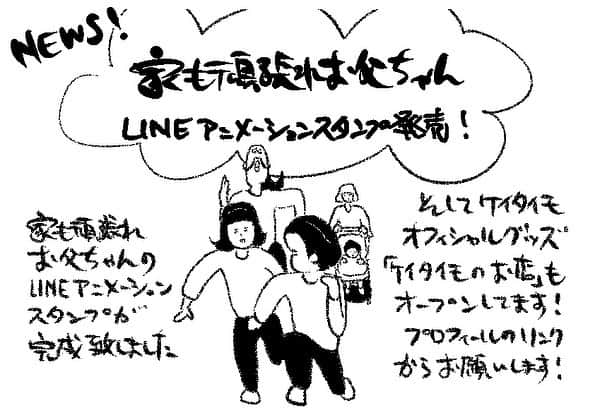 NEWS!
家でも頑張れお父ちゃん
LINEアニメーションスタンプ発売!
家でも頑張れ
お父ちゃんの
LINEアニメーション
スタンプが
完成致しました
そしてケイタイモ
オフィシャルグッズ
「ケイタイモのお店」も
オープンしてます!
プロフィールのリンク
からお願いします!